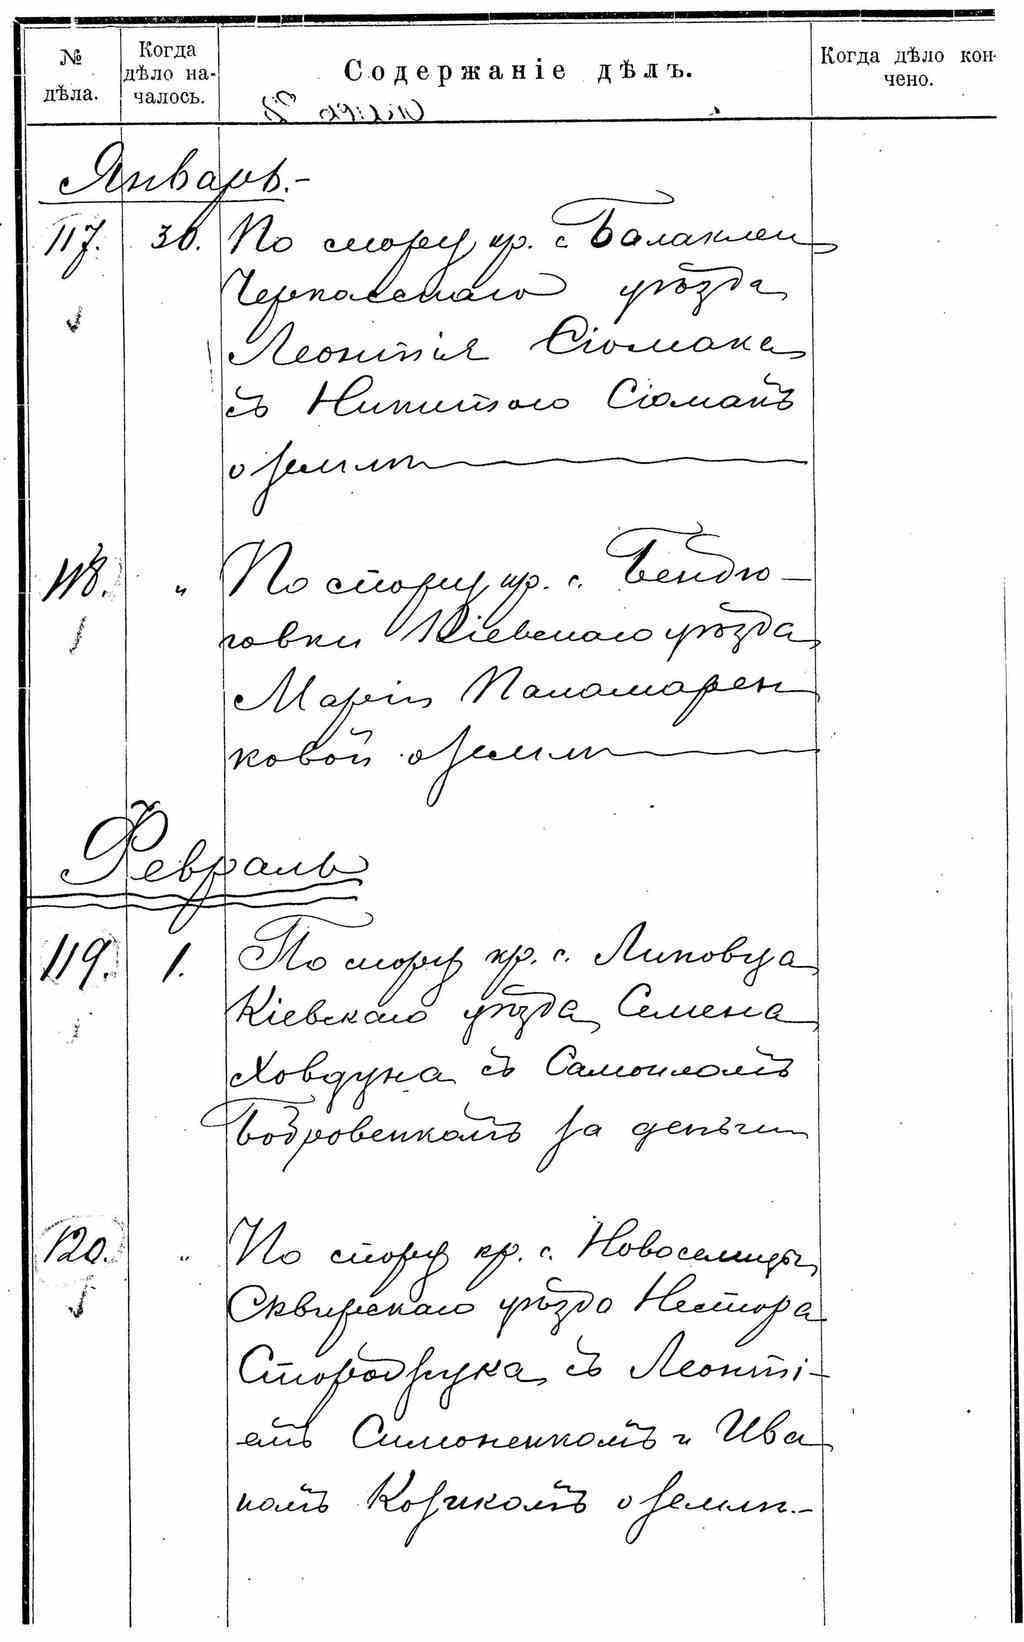 № дѣла.
Когда дѣло началось.
Содержаніе дѣлъ.
Когда дѣло кончено.
Январь.-
117. 30. По спору кр. с. Балаклеи
Черкасскаго уѣзда
Леонтія Сіомака
съ Никитою Сіомакъ
о землѣ
118. " По спору кр. с. Бендю-
говки Кіевскаго уѣзда
Маріи Паламарен
ковой о землѣ
Февраль
119. 1. По спору кр. с. Липовца
Кіевскаго уѣзда Семена
Ховдуна съ Самоиломъ
Бобровенкомъ за деньги
120. " По спору кр. с. Новоселицы
Сквирскаго уѣзда Нестора
съ Леонті-
емъ Симоненкомъ и Ива
номъ Козикомъ о землѣ.-